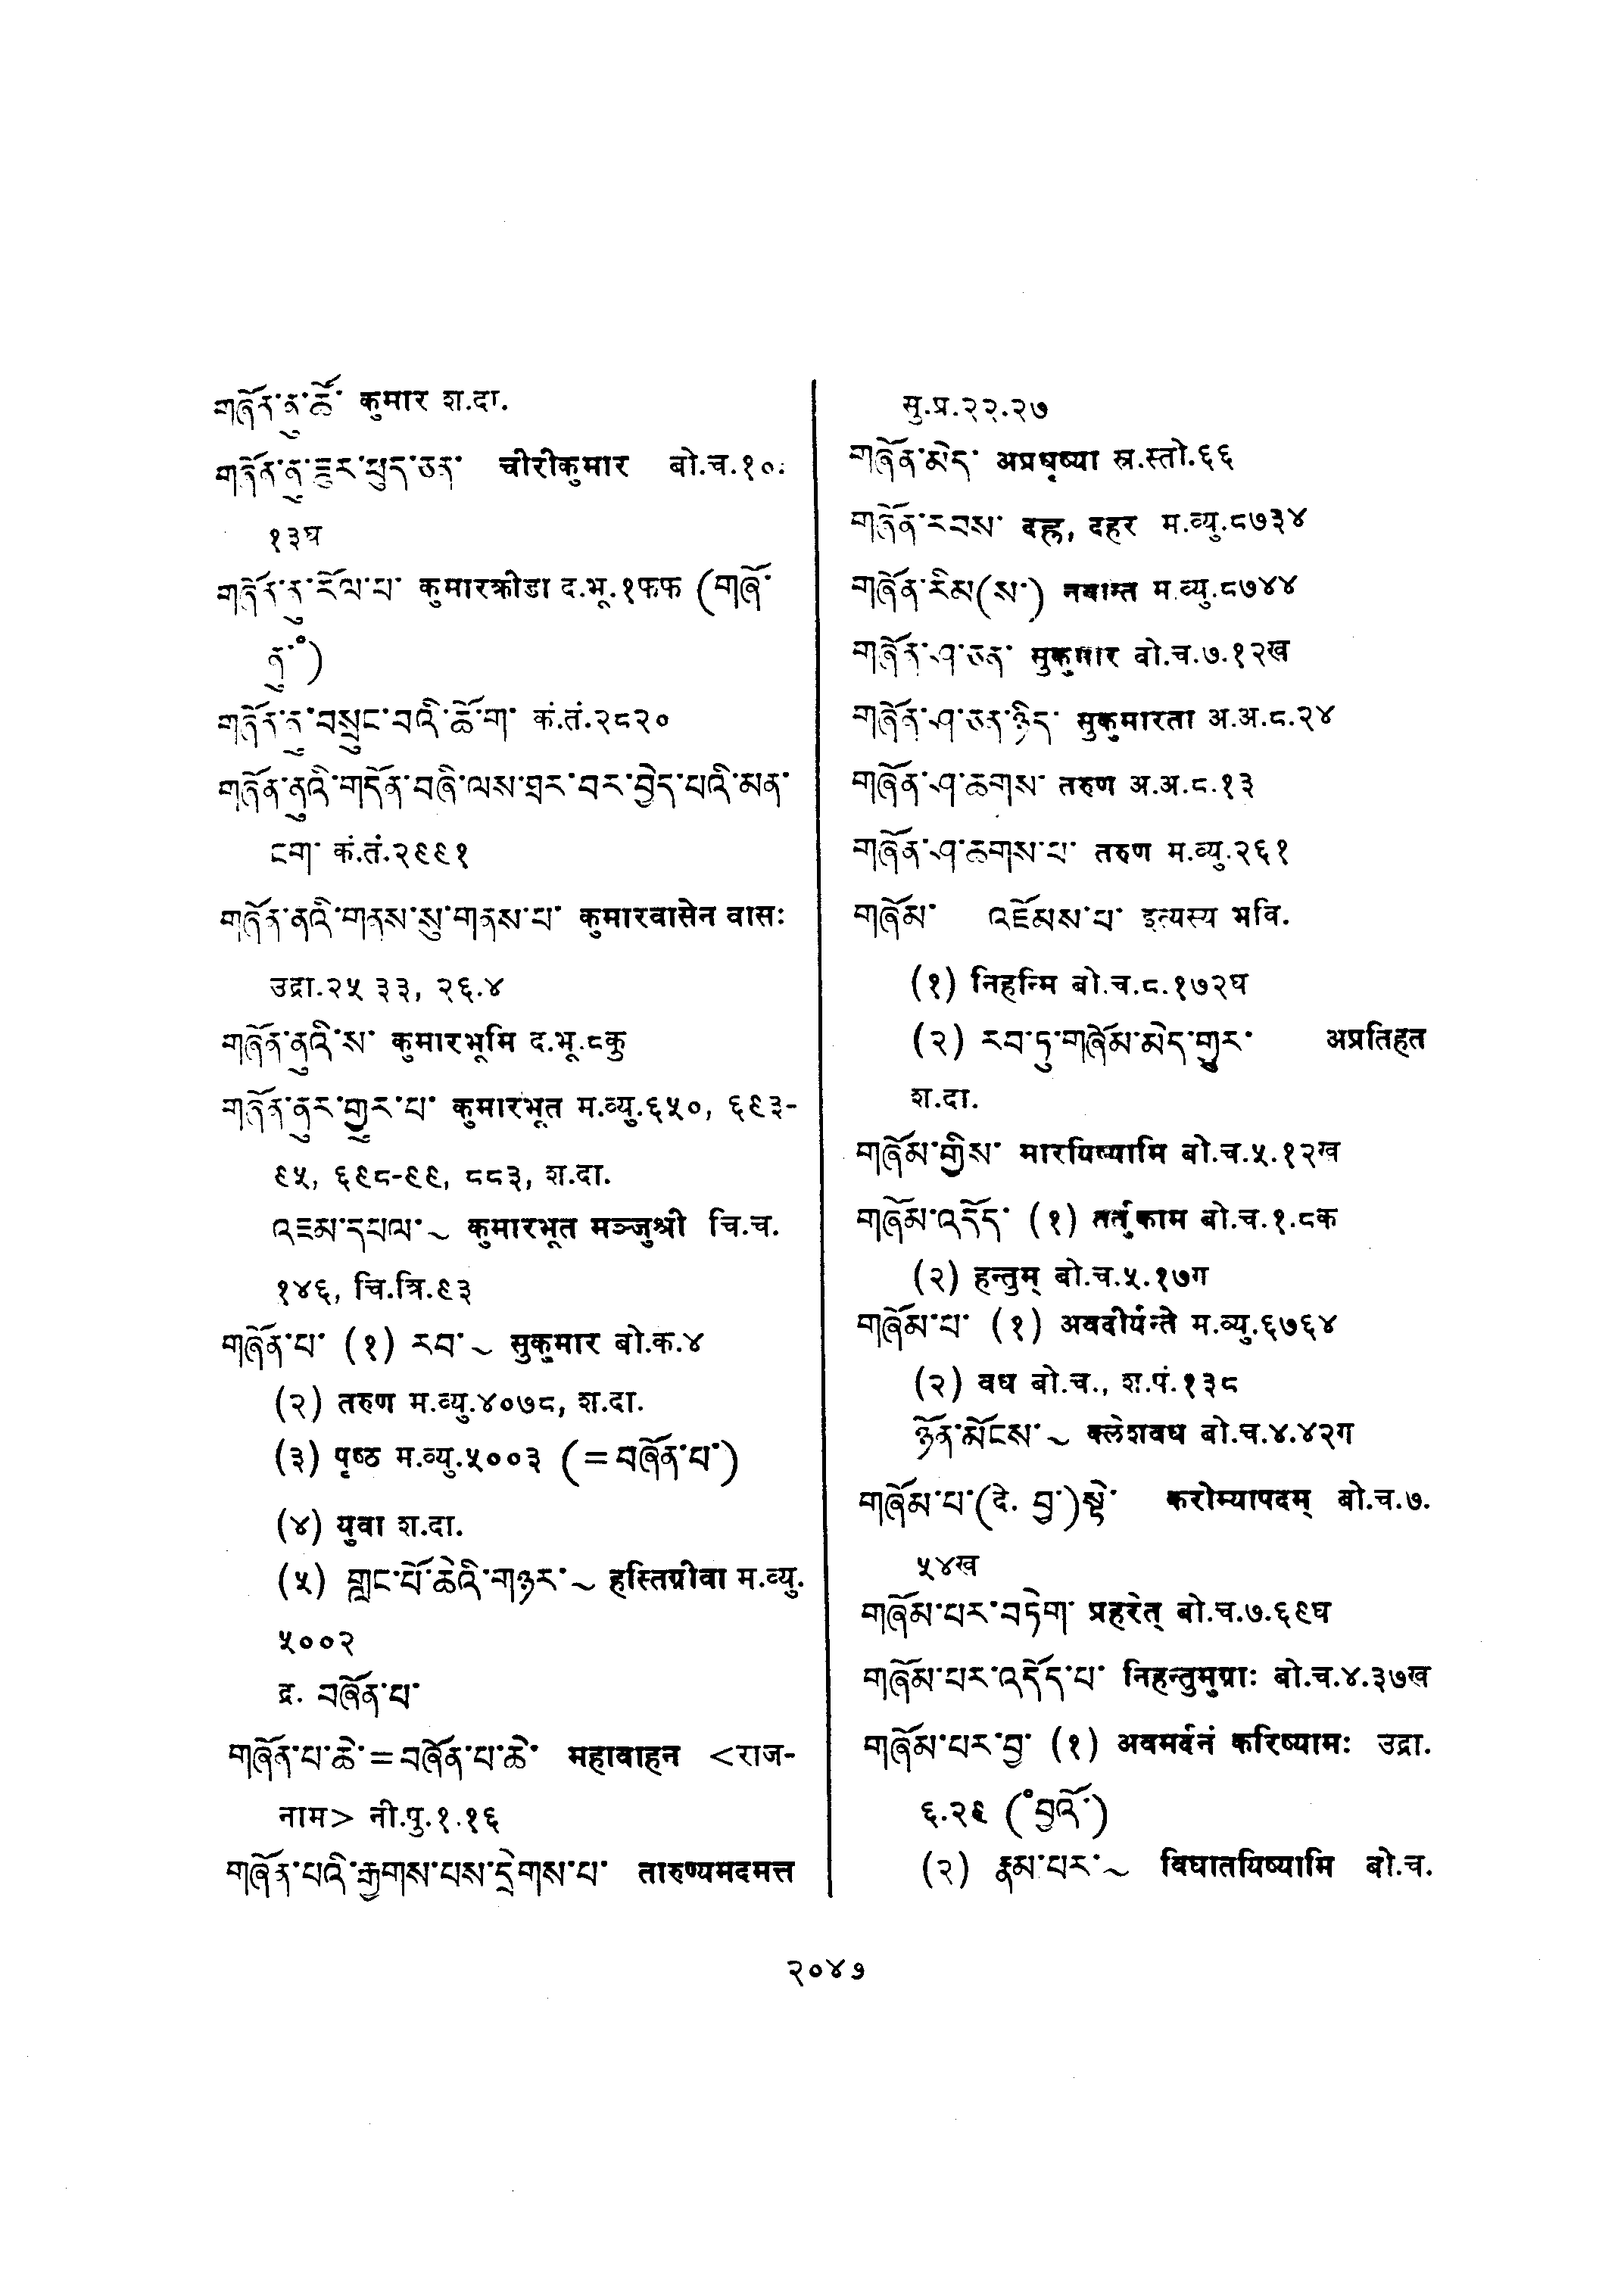 གཞོན་ནུ་ཚོ་ कुमार श.दा.
གཞོན་ནུ་ཟུར་ཕུད་ཅན་ चीरीकुमार बो.च.१०.
१३घ
གཞོན་ནུ་རོལ་པ་ कुमारक्रीडा द.भू.१फफ (གཞོ་
ནུ་ं)
གཞོན་ནུ་བསྲུང་བའི་ཆོ་ག་ कं.तं.२८२०
གཞོན་ནུའི་གདོན་བཞི་ལས་ཐར་བར་བྱེད་པའི་མན་
ངག་ कं.तं.२९९१
གཞོན་ནའི་གནས་སུ་གནས་པ་ कुमारवासेन वासः
उद्रा.२५ ३३, २६.४
གཞོན་ནུའི་ས་ कुमारभूमि द.भू.८कु
གཞོན་ནུར་གྱུར་པ་ कुमारभूत म.व्यु.६५०, ६९३-
९५, ६९८-९९, ८८३, श.दा.
འཇམ་དཔལ་~ कुमारभूत मञ्जुश्री चि.च.
१४६, चि.त्रि.९३
གཞོན་པ་ (१) རབ་~ सुकुमार बो.क.४
(२) तरुण म.व्यु.४०७८, श.दा.
(३) पृष्ठ म.व्यु.५००३ (=བཞོན་པ་)
(४) युवा श.दा.
(५) གླང་པོ་ཆེའི་གཉར་~ हस्तिग्रीवा म.व्यु.
५००२
द्र. བཞོན་པ་
གཞོན་པ་ཆེ་=བཞོན་པ་ཆེ་ महावाहन <राज-
नाम> नी.पु.१.१६
གཞོན་པའི་རྒྱགས་པས་དྲེགས་པ་ तारुण्यमदमत्त
सु.प्र.२२.२७
གཞོན་མེད་ अप्रधृष्या स्र.स्तो.६६
གཞོན་རབས་ दह्र, दहर म.व्यु.८७३४
གཞོན་རིམ(ས་) नवान्त म.व्यु.८७४४
གཞོན་ཤ་ཅན་ सुकुमार बो.च.७.१२ख
གཞོན་ཤ་ཅན་ཉིད་ सुकुमारता अ.अ.८.२४
གཞོན་ཤ་ཆགས་ तरुण अ.अ.८.१३
གཞོན་ཤ་ཆགས་པ་ तरुण म.व्यु.२६१
གཞོམ་ འཇོམས་པ་ इत्यस्य भवि.
(१) निहन्मि बो.च.८.१७२घ
(२) རབ་ཏུ་གཞོམ་མེད་གྱུར་ अप्रतिहत
श.दा.
གཞོམ་གྱིས་ मारयिष्यामि बो.च.५.१२ख
གཞོམ་འདོད་ (१) तर्तुकाम बो.च.१.८क
(२) हन्तुम् बो.च.५.१७ग
གཞོམ་པ་ (१) अवदीर्यन्ते म.व्यु.६७६४
(२) वध बो.च., श.पं.१३८
ཉོན་མོངས་~ क्लेशवध बो.च.४.४२ग
གཞོམ་པ་(दे. བྱ་)སྟེ་ करोम्यापदम् बो.च.७.
५४ख
གཞོམ་པར་བཏེག་ प्रहरेत् बो.च.७.६९घ
གཞོམ་པར་འདོད་པ་ निहन्तुमुग्राः बो.च.४.३७ख
གཞོམ་པར་བྱ་ (१) अवमर्दनं करिष्यामः उद्रा.
६.२९ (ंབྱའོ་)
(२) རྣམ་པར་~ विघातयिष्यामि बो.च.
२०४७